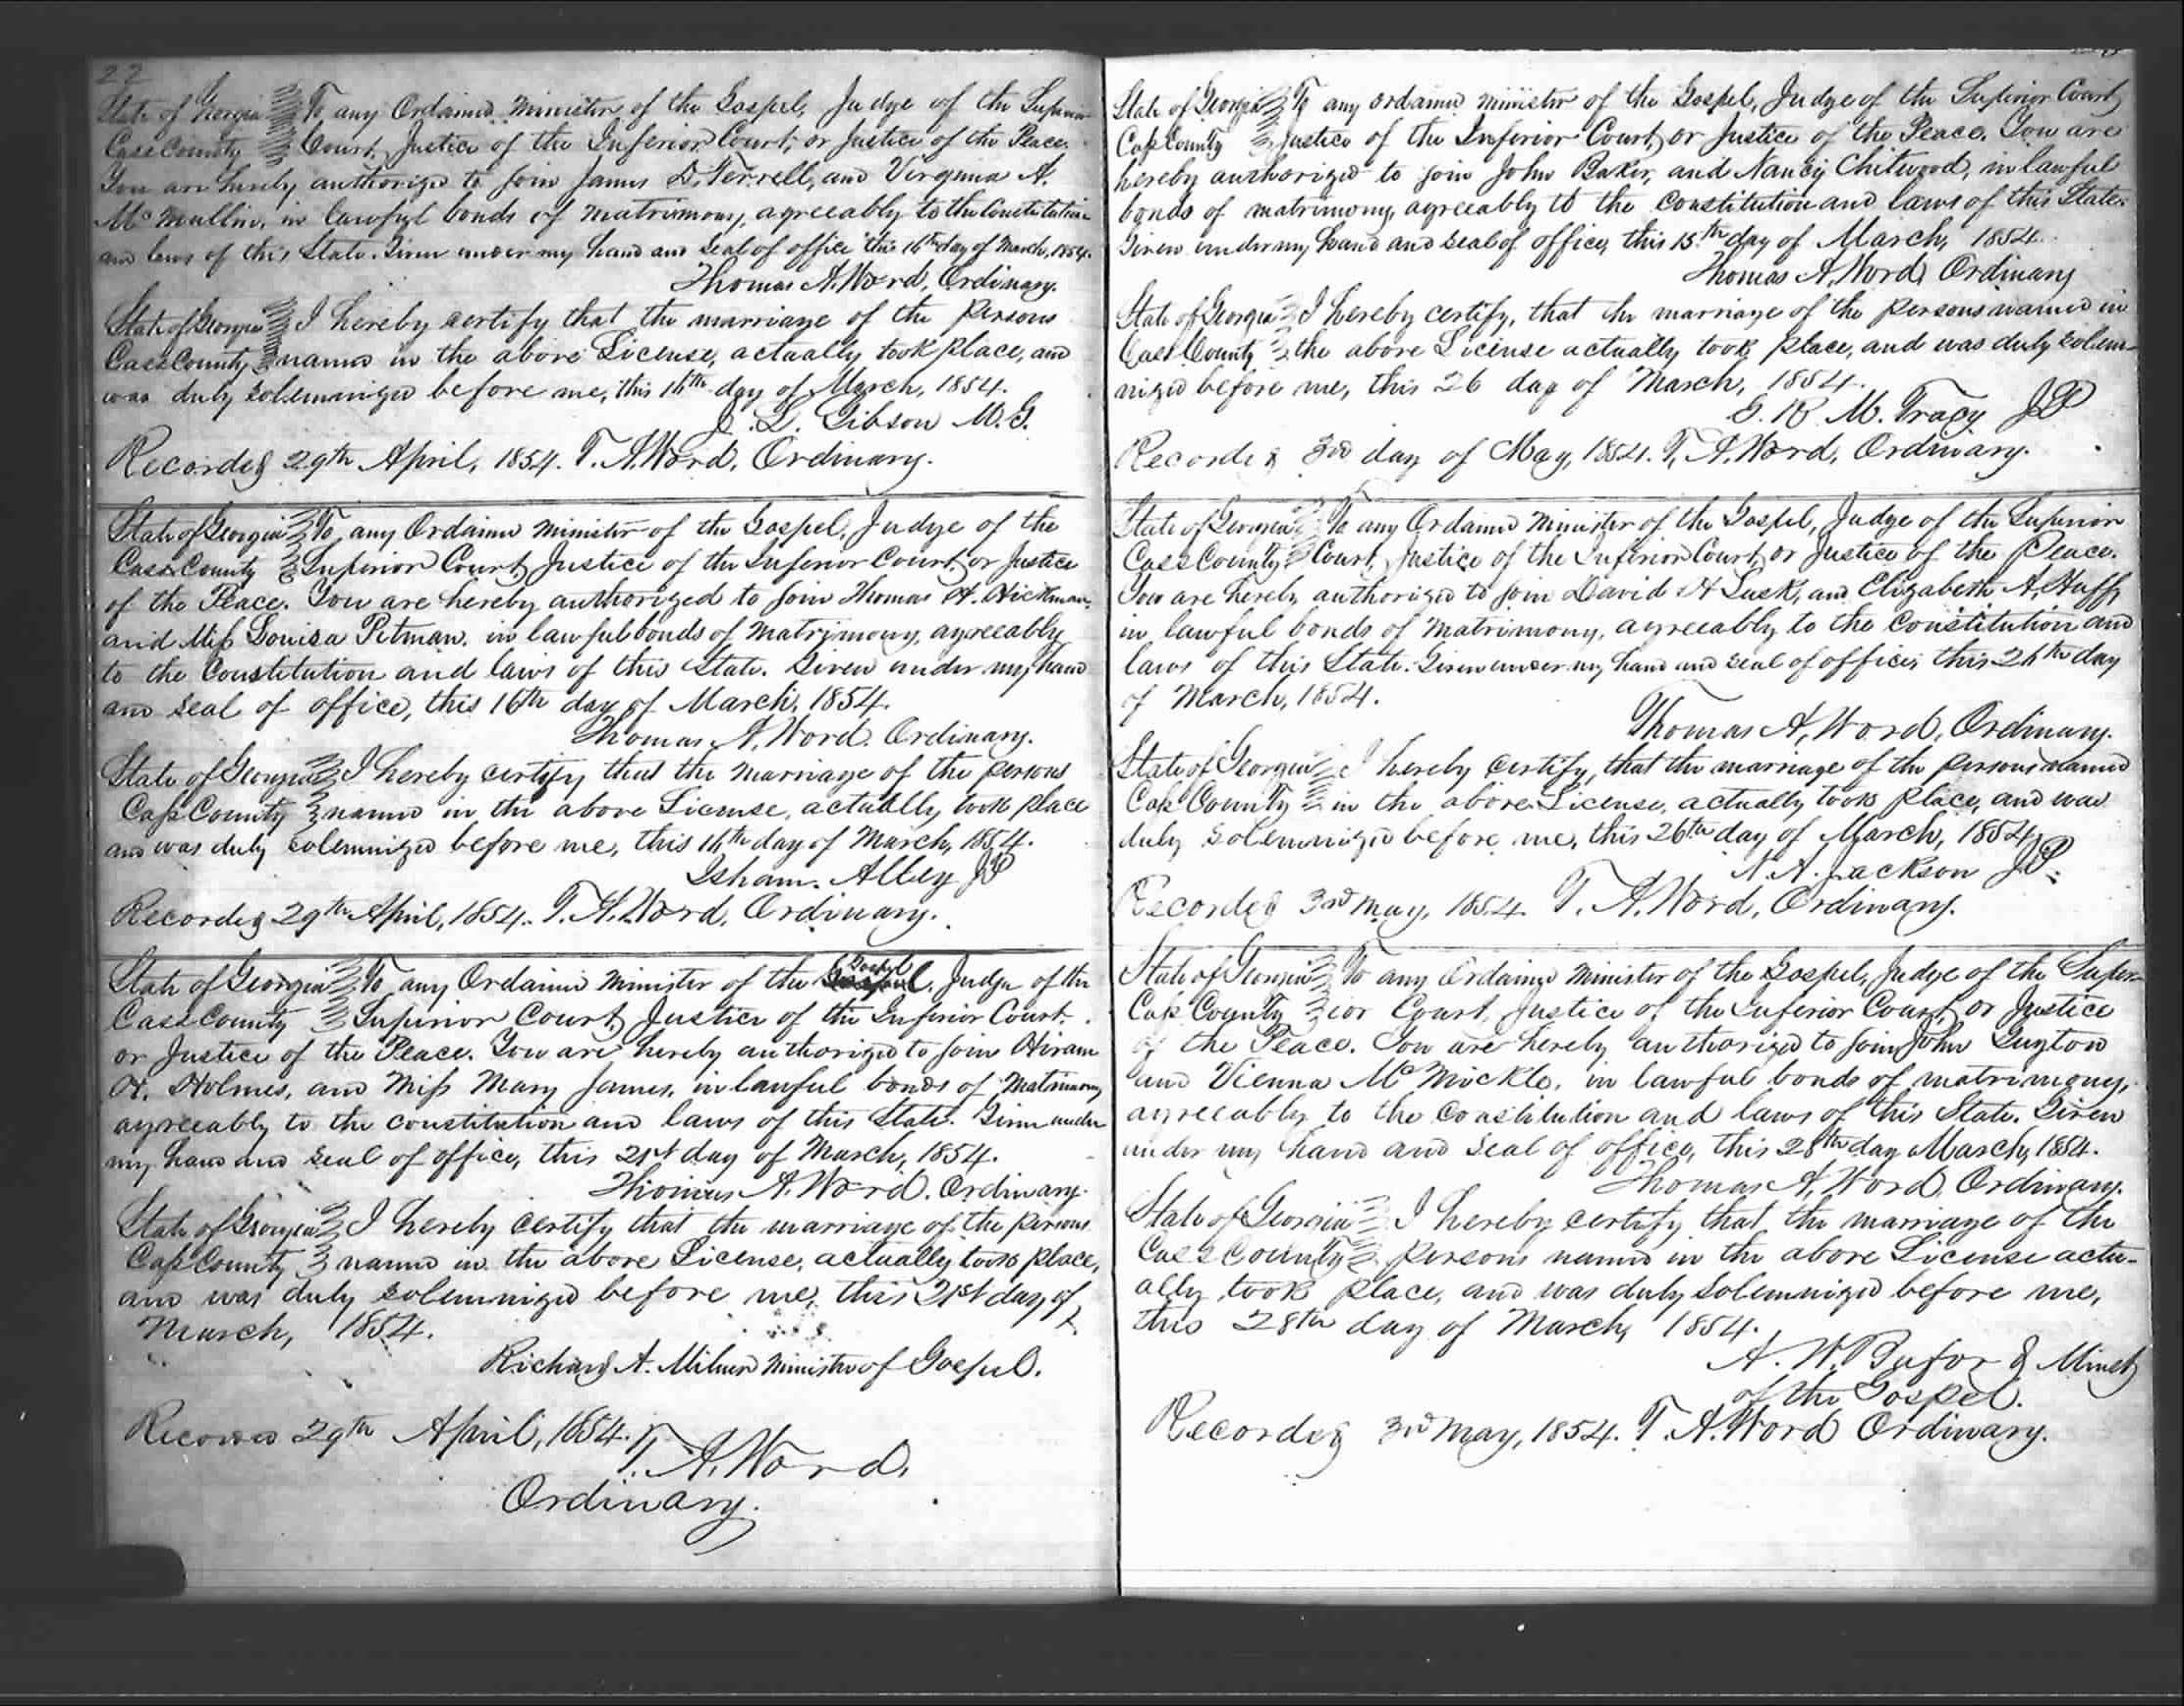 22
State of Georgia To any Ordained Minister of the Gospel, Judge of the Superior
Cass County Court, Justice of the Inferior Court, or Justice of the Peace.
You are hereby authorized to join James D. Terrell, and Virginia A.
McMullin, in lawful bonds of matrimony, agreeably to the Constitution
and laws of this State. Given under my hand and seal of office this 16th day of March, 1854.
Thomas A. Word, Ordinary.
State of Georgia I hereby certify that the marriage of the persons
Cass County named in the above License, actually took place, and
was duly solemnized before me, this 16th day of March, 1854.
J. L. Gibson M. G.
Recorded 29th April, 1854. T. A. Word, Ordinary.
State of Georgia To any Ordained Minister of the Gospel, Judge of the
Cass County Superior Court, Justice of the Inferior Court, or Justice
of the Peace. You are hereby authorized to join Thomas H. Hickman,
and Miss Louisa Pitman, in lawful bonds of Matrimony, agreeably
to the Constitution and laws of this State. Given under my hand
and seal of office, this 16th day of March, 1854.
Thomas A. Word. Ordinary.
State of Georgia I hereby certify that the marriage of the persons
Cass County named in the above License, actually took place
and was duly solemnized before me, this 16th day of March, 1854.
Isham. Alley JP
Recorded 29th April, 1854. T. A. Word, Ordinary.
State of Georgia To any Ordained Minister of the Gospel, Judge of the
Cass County Superior Court, Justice of the Inferior Court,
or Justice of the Peace. You are hereby authorized to join Hiram
H. Holmes, and Miss Mary James, in lawful bonds of Matrimony
agreeably to the constitution and laws of this State. Given under
my hand and seal of office, this 21st day of March, 1854.
Thomas A. Word. Ordinary.
State of Georgia I hereby certify that the marriage of the persons
Cass County named in the above License, actually took place,
and was duly solemnized before me, this 21st day of
March, 1854.
Richard A. Milner Minister of Gospel.
Recorded 29th April, 1854.
T. A. Word,
Ordinary.
State of Georgia To any ordained minister of the Gospel, Judge of the Superior Court
Cass County Justice of the Inferior Court, or Justice of the Peace. You are
hereby authorized to join John Baker, and Nancy Chitwood, in lawful
bonds of matrimony, agreeably to the constitution and laws of this State.
Given under my hand and seal of office, this 15th day of March, 1854.
Thomas A. Word, Ordinary
State of Georgia I hereby certify, that the marriage of the persons named in
Cass County the above License actually took place, and was duly solem-
nized before me, this 26 day of March, 1854.
G. R. M. Tracy JP
Recorded 3rd day of May, 1854. T. A. Word, Ordinary.
State of Georgia To any Ordained Minister of the Gospel, Judge of the Superior
Cass County Court, Justice of the Inferior Court, or Justice of the Peace.
You are hereby authorized to join David H Lusk, and Elizabeth A. Huff,
in lawful bonds of Matrimony, agreeably to the Constitution and
laws of this State. Given under my hand and seal of office, this 26th day
of March, 1854.
Thomas A, Word, Ordinary.
State of Georgia I hereby certify, that the marriage of the persons named
Cass County in the above License, actually took place, and was
duly solemnized before me, this 26th day of March, 1854,
N. A. Jackson JP.
Recorded 3rd May, 1854. T. A. Word, Ordinary.
State of Georgia To any Ordained Minister of the Gospel, Judge of the Super-
Cass County ior Court, Justice of the Inferior Court, or Justice
of the Peace. You are hereby authorized to join John Guyton
and Vienna McMickle, in lawful bonds of matrimony,
agreeably to the constitution and laws of this State. Given
under my hand and seal of office, this 28th day March, 1854.
Thomas A, Word, Ordinary.
State of Georgia I hereby certify that the marriage of the
Cass County persons named in the above License actu-
ally took place, and was duly solemnized before me,
this 28th day of March, 1854.
A. W. Buford Minst
of the Gospel.
Recorded 3rd May, 1854. T. A. Word Ordinary.